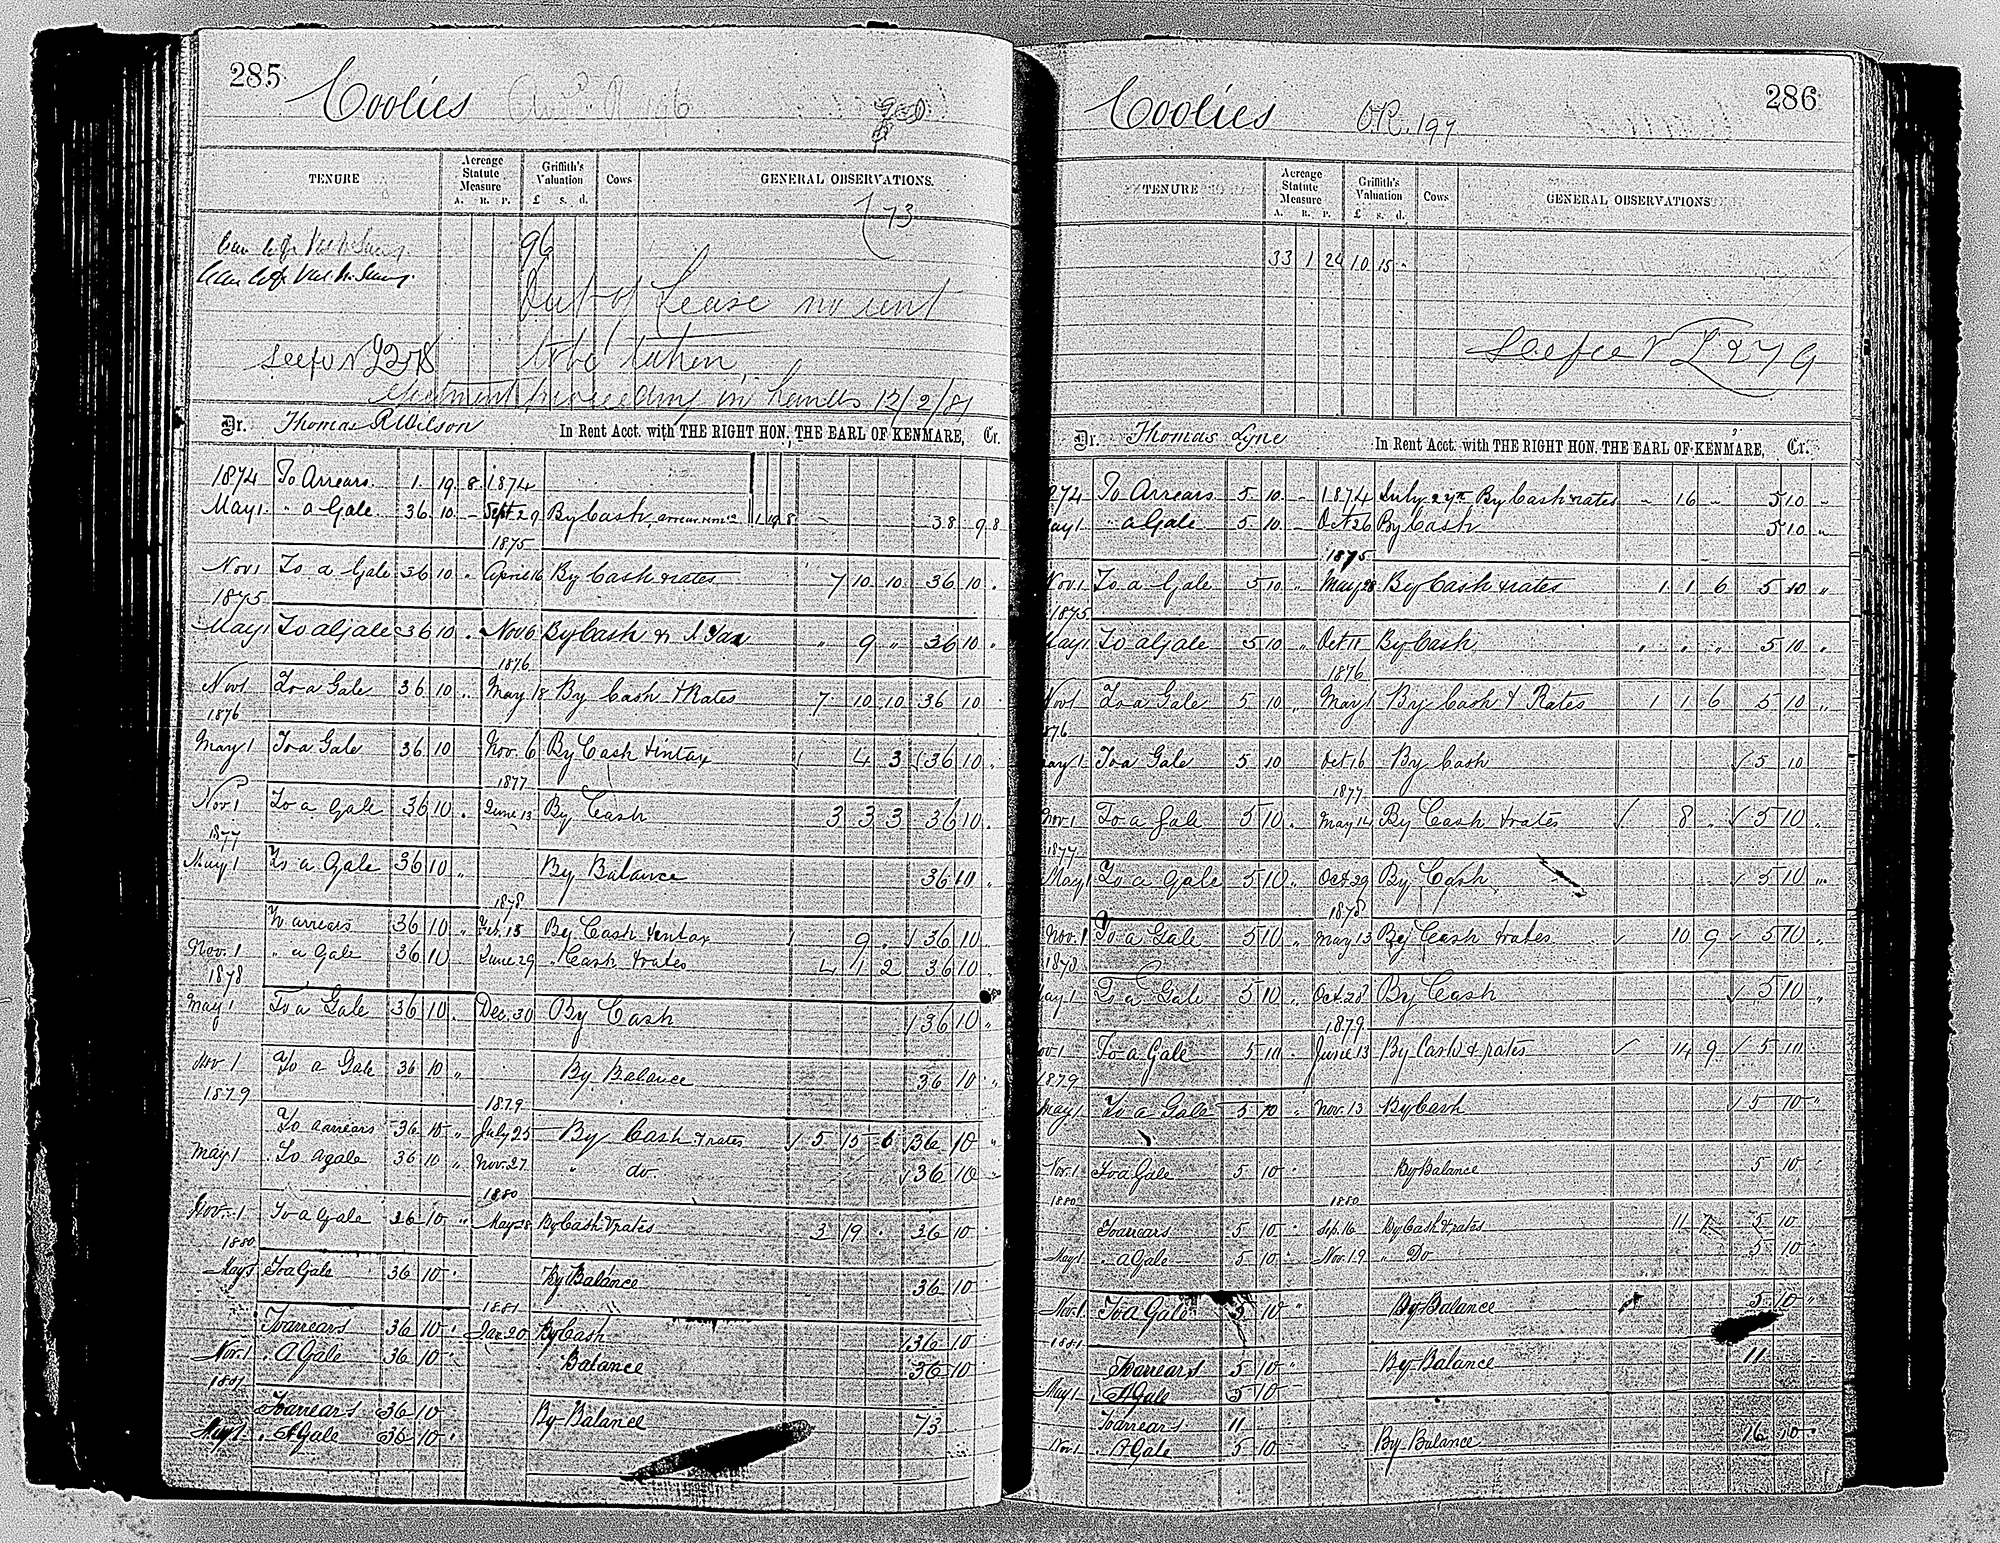 285
Coolies
TENURE Acreage Statute Measure Griffith's Valuation Cows GENERAL OBSERVATIONS.
A. R. P. £ s. d.
73
96
Out of Lease no rent
to be taken
ejectment proceeding in hands 12/2/81
Dr. Thomas R Wilson In Rent Acct. with THE RIGHT HON. THE EARL OF KENMARE, Cr.
1874 To Arrears 1 19 8 1874
May 1 " a Gale 36 10 - Sept. 29 By Cash 1 19 8 38 9 8
1875
Nov 1 To a Gale 36 10 " April 16 By Cash & rates 7 10 10 36 10 "
1875
May 1 To a Gale 36 10 " Nov 6 By Cash & I Tax " 9 " 36 10 "
1876
Nov 1 To a Gale 36 10 " May 18 By Cash & Rates 7 10 10 36 10
1876
May 1 To a Gale 36 10 Nov. 6 By Cash & intax 4 3 36 10 "
1877
Nov. 1 To a Gale 36 10 " June 13 By Cash 3 3 3 36 10 "
1877
May 1 To a Gale 36 10 " By Balance 36 10 "
1878
To arrears 36 10 " Feb. 15 By Cash & intax 9 " 36 10 "
Nov. 1 " a Gale 36 10 June 29 " Cash & rates 4 1 2 36 10 "
1878
May 1 To a Gale 36 10 " Dec. 30 By Cash 36 10 "
Nov 1 To a Gale 36 10 " By Balance 36 10 "
1879
1879
To arrears 36 10 " July 25 By Cash & rates 5 15 6 36 10 "
May 1 To a gale 36 10 " Nov. 27 " do. 36 10 "
1880
Nov. 1 To a Gale 36 10 " May 28 By Cash & rates 3 19 " 36 10
1880
May 1 To a Gale 36 10 " By Balance 36 10
1881
To arrears 36 10 " Jan 20 By Cash 36 10
Nov. 1 " A Gale 36 10 " Balance 36 10
1881
To arrears 36 10 By Balance 73
May 1 " A Gale 36 10 "
286
Coolies O.R. 197
TENURE Acreage Statute Measure Griffith's Valuation Cows GENERAL OBSERVATIONS
A. R. P. £ s. d.
33 1 24 10 15 -
279
Dr. Thomas Lyne In Rent Acct. with THE RIGHT HON. THE EARL OF KENMARE, Cr.
1874 To Arrears 5 10 - 1874 July 27th By Cash & rates " 16 " 5 10 "
May 1 " a Gale 5 10 - Oct 26 By Cash 5 10 "
1875
Nov. 1 To a Gale 5 10 " May 28 By Cash & rates 1 1 6 5 10 "
1875
May 1 To a Gale 5 10 " Oct 11 By Cash " " " 5 10 "
1876
Nov 1 To a Gale 5 10 " May 1 By Cash & Rates 1 1 6 5 10 "
1876
May 1 To a Gale 5 10 Oct. 16 By Cash ✓ 5 10
1877
Nov. 1 To a Gale 5 10 " May 14 By Cash & rates ✓ 8 " ✓ 5 10 "
1877
May 1 To a Gale 5 10 " Oct. 29 By Cash ✓ 5 10 "
1878
Nov. 1 To a Gale 5 10 " May 13 By Cash & rates ✓ 10 9 ✓ 5 10 "
1878
May 1 To a Gale 5 10 " Oct. 28 By Cash ✓ 5 10 "
1879
Nov 1 To a Gale 5 10 " June 13 By Cash & rates ✓ 14 9 ✓ 5 10
1879
May 1 To a Gale 5 10 " Nov. 13 By Cash ✓ 5 10 "
Nov. 1 To a Gale 5 10 " By Balance 5 10 "
1880 1880
To arrears 5 10 " Sep. 16 By Cash & rates 11 5 10
May 1 " a Gale 5 10 " Nov. 19 " Do 5 10 "
Nov. 1 To a Gale 5 10 " By Balance 5 10 "
1881
To arrears 5 10 " By Balance 11
May 1 " A Gale 5 10 -
To arrears 11
Nov 1 " A Gale 5 10 - By Balance 16 10 "